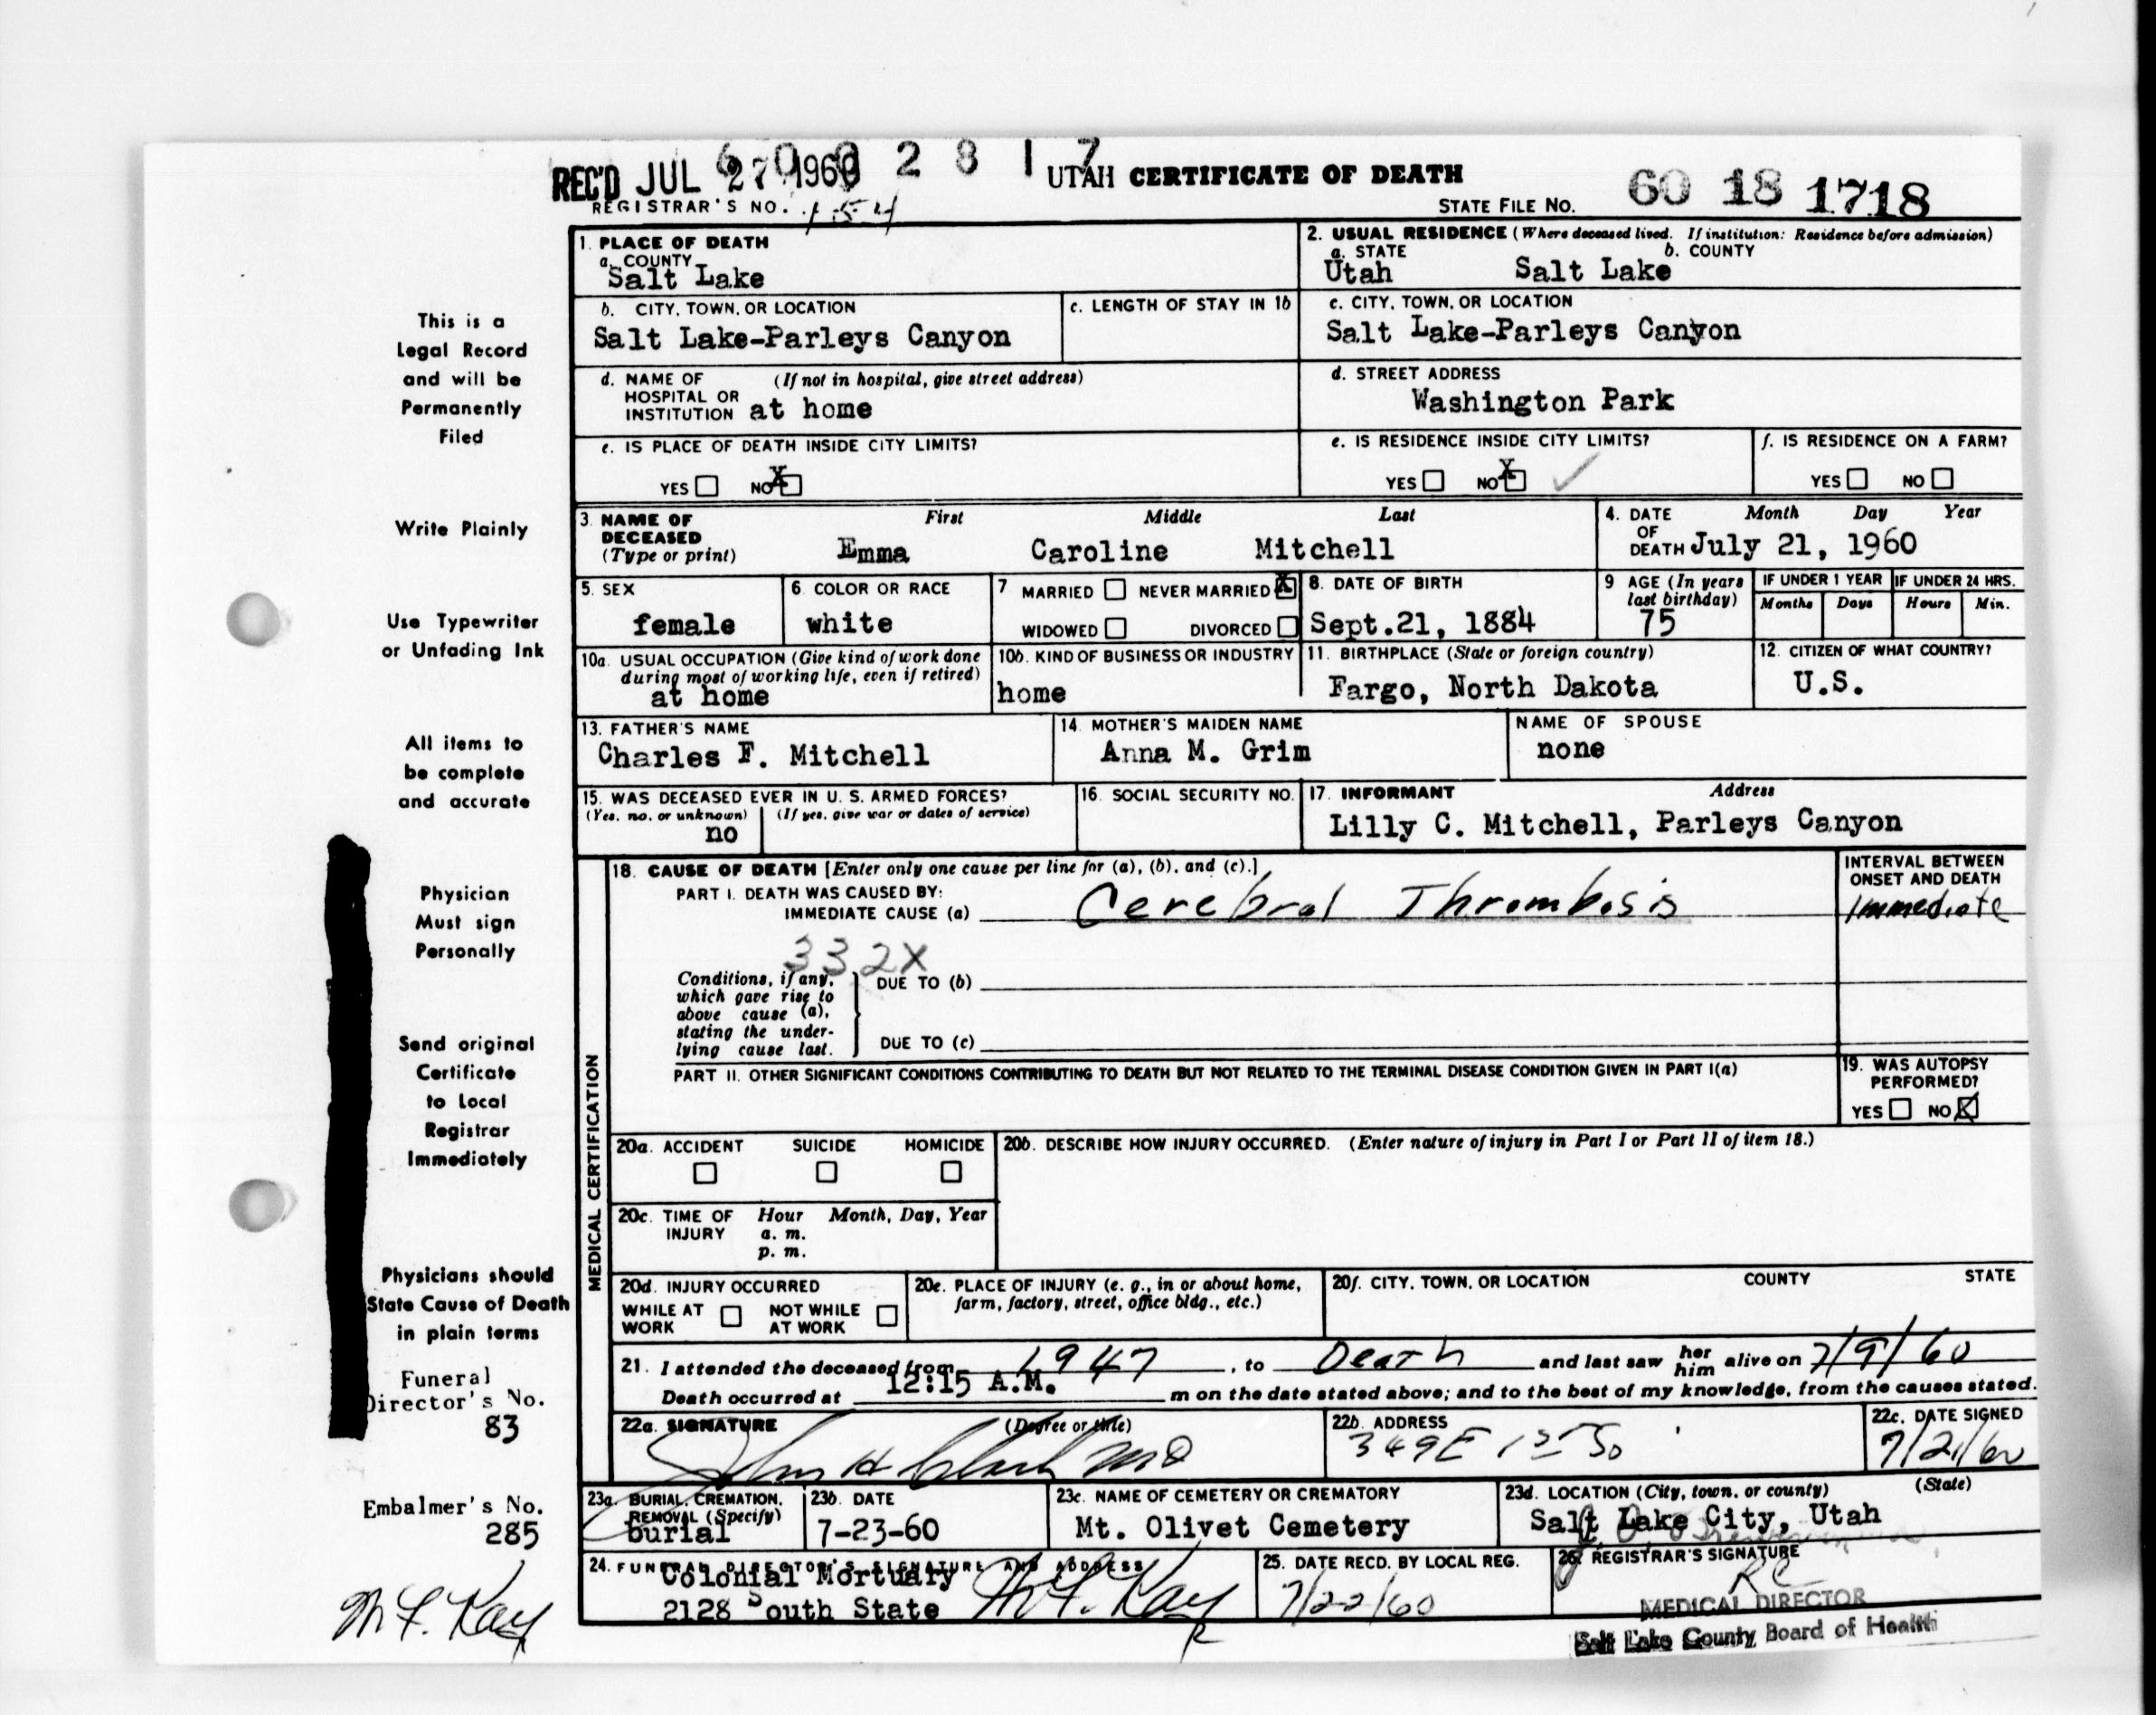 REC'D JUL 27 1960
6 0 0 2 8 1 7
UTAH CERTIFICATE OF DEATH
REGISTRAR'S NO. 154
STATE FILE NO. 60 18 1718
1. PLACE OF DEATH
a. COUNTY
Salt Lake
2. USUAL RESIDENCE (Where deceased lived. If institution: Residence before admission)
a. STATE b. COUNTY
Utah Salt Lake
b. CITY, TOWN, OR LOCATION
Salt Lake-Parleys Canyon
c. LENGTH OF STAY IN 1b
c. CITY, TOWN, OR LOCATION
Salt Lake-Parleys Canyon
d. NAME OF (If not in hospital, give street address)
HOSPITAL OR
INSTITUTION at home
d. STREET ADDRESS
Washington Park
e. IS PLACE OF DEATH INSIDE CITY LIMITS?
YES NO X
e. IS RESIDENCE INSIDE CITY LIMITS?
YES NO X
f. IS RESIDENCE ON A FARM?
YES NO
3. NAME OF DECEASED
(Type or print)
First Middle Last
Emma Caroline Mitchell
4. DATE OF DEATH
Month Day Year
July 21, 1960
5. SEX
female
6. COLOR OR RACE
white
7 MARRIED NEVER MARRIED X
WIDOWED DIVORCED
8. DATE OF BIRTH
Sept.21, 1884
9 AGE (In years
last birthday)
75
IF UNDER 1 YEAR
Months Days
IF UNDER 24 HRS.
Hours Min.
10a. USUAL OCCUPATION (Give kind of work done
during most of working life, even if retired)
at home
10b. KIND OF BUSINESS OR INDUSTRY
home
11. BIRTHPLACE (State or foreign country)
Fargo, North Dakota
12. CITIZEN OF WHAT COUNTRY?
U.S.
13. FATHER'S NAME
Charles F. Mitchell
14. MOTHER'S MAIDEN NAME
Anna M. Grim
NAME OF SPOUSE
none
15. WAS DECEASED EVER IN U. S. ARMED FORCES?
(Yes, no, or unknown) (If yes, give war or dates of service)
no
16. SOCIAL SECURITY NO.
17. INFORMANT Address
Lilly C. Mitchell, Parleys Canyon
MEDICAL CERTIFICATION
18. CAUSE OF DEATH [Enter only one cause per line for (a), (b), and (c).]
PART I. DEATH WAS CAUSED BY:
IMMEDIATE CAUSE (a) Cerebral Thrombosis
INTERVAL BETWEEN
ONSET AND DEATH
Immediate
332X
Conditions, if any,
which gave rise to
above cause (a),
stating the under-
lying cause last.
DUE TO (b)
DUE TO (c)
PART II. OTHER SIGNIFICANT CONDITIONS CONTRIBUTING TO DEATH BUT NOT RELATED TO THE TERMINAL DISEASE CONDITION GIVEN IN PART I(a)
19. WAS AUTOPSY
PERFORMED?
YES NO X
20a. ACCIDENT SUICIDE HOMICIDE
20b. DESCRIBE HOW INJURY OCCURRED. (Enter nature of injury in Part I or Part II of item 18.)
20c. TIME OF INJURY
Hour Month, Day, Year
a. m.
p. m.
20d. INJURY OCCURRED
WHILE AT WORK NOT WHILE AT WORK
20e. PLACE OF INJURY (e. g., in or about home,
farm, factory, street, office bldg., etc.)
20f. CITY, TOWN, OR LOCATION COUNTY STATE
21. I attended the deceased from 1947, to Death and last saw her him alive on 7/9/60
Death occurred at 12:15 A.M. m on the date stated above; and to the best of my knowledge, from the causes stated.
22a. SIGNATURE (Degree or title)
John H Clark MD
22b. ADDRESS
349 E
22c. DATE SIGNED
7/21/60
23a. BURIAL, CREMATION,
REMOVAL (Specify)
burial
23b. DATE
7-23-60
23c. NAME OF CEMETERY OR CREMATORY
Mt. Olivet Cemetery
23d. LOCATION (City, town, or county) (State)
Salt Lake City, Utah
24. FUNERAL DIRECTOR'S SIGNATURE AND ADDRESS
Colonial Mortuary
2128 South State
M F. Kay
25. DATE RECD. BY LOCAL REG.
7/22/60
26. REGISTRAR'S SIGNATURE
MEDICAL DIRECTOR
Salt Lake County Board of Health
This is a
Legal Record
and will be
Permanently
Filed
Write Plainly
Use Typewriter
or Unfading Ink
All items to
be complete
and accurate
Physician
Must sign
Personally
Send original
Certificate
to Local
Registrar
Immediately
Physicians should
State Cause of Death
in plain terms
Funeral
Director's No.
83
Embalmer's No.
285
M F. Kay